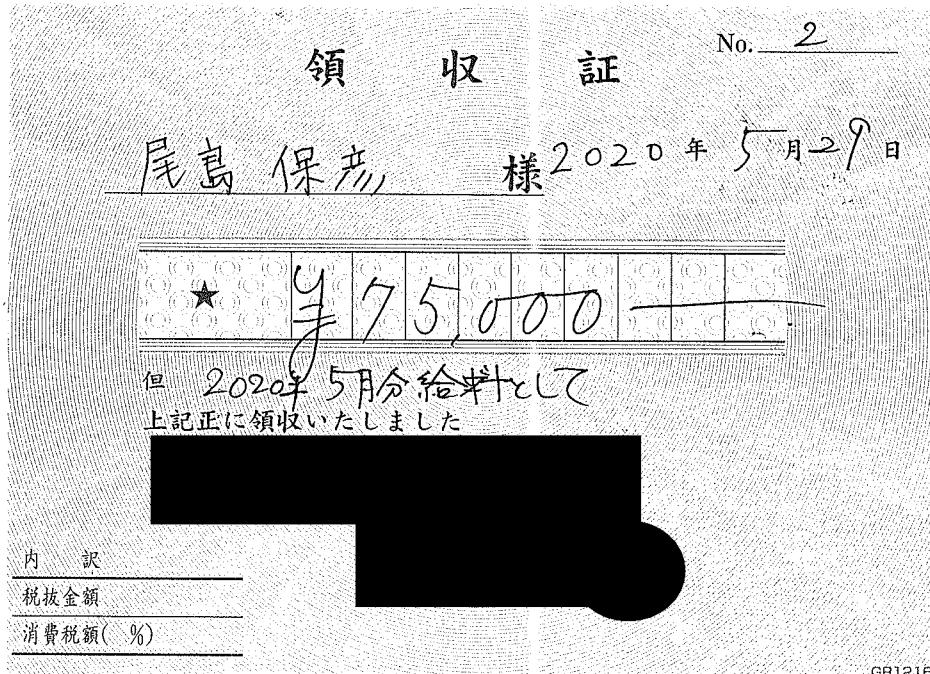 No. 2
領収証
尾島 保彦 様 2020年 5月29日
★ ¥75,000
但 2020年5月分給料として
上記正に領収いたしました
内 訳
税抜金額
消費税額( %)
GB1216